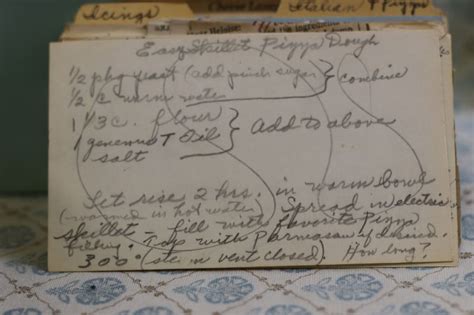 Icings
Italian & Pizza
Easy Skillet Pizza Dough
1/2 pkg yeast (add pinch sugar) } combine
1/2 c warm water
1 1/3 c. flour
1 generous T Oil } Add to above
salt
Let rise 2 hrs. in warm bowl
(warmed in hot water) Spread in electric
skillet - fill with favorite Pizza
filling. Top with Parmesan if desired.
300° (steam vent closed). How long?